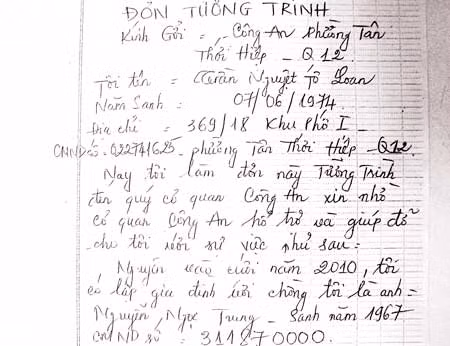 ĐƠN TƯỜNG TRÌNH
Kính Gởi = Công An phường Tân
Thới Hiệp - Q 12.
Tôi tên = Trần Nguyệt Tô Loan
Năm Sanh = 07/06/1974.
Địa chỉ = 369/18 Khu Phố I -
CMND số: 022741625 - phường Tân Thới Hiệp - Q12.
Nay tôi làm đơn này Tường Trình
đến quý cơ quan Công An xin nhờ
cơ quan Công An hổ trợ và giúp đỡ
cho tôi với sự việc như sau =
Nguyên vào cuối năm 2010, tôi
có lập gia đình với chồng tôi là anh =
Nguyễn Ngọc Trung - Sanh năm 1967
CMND số = 311870000.